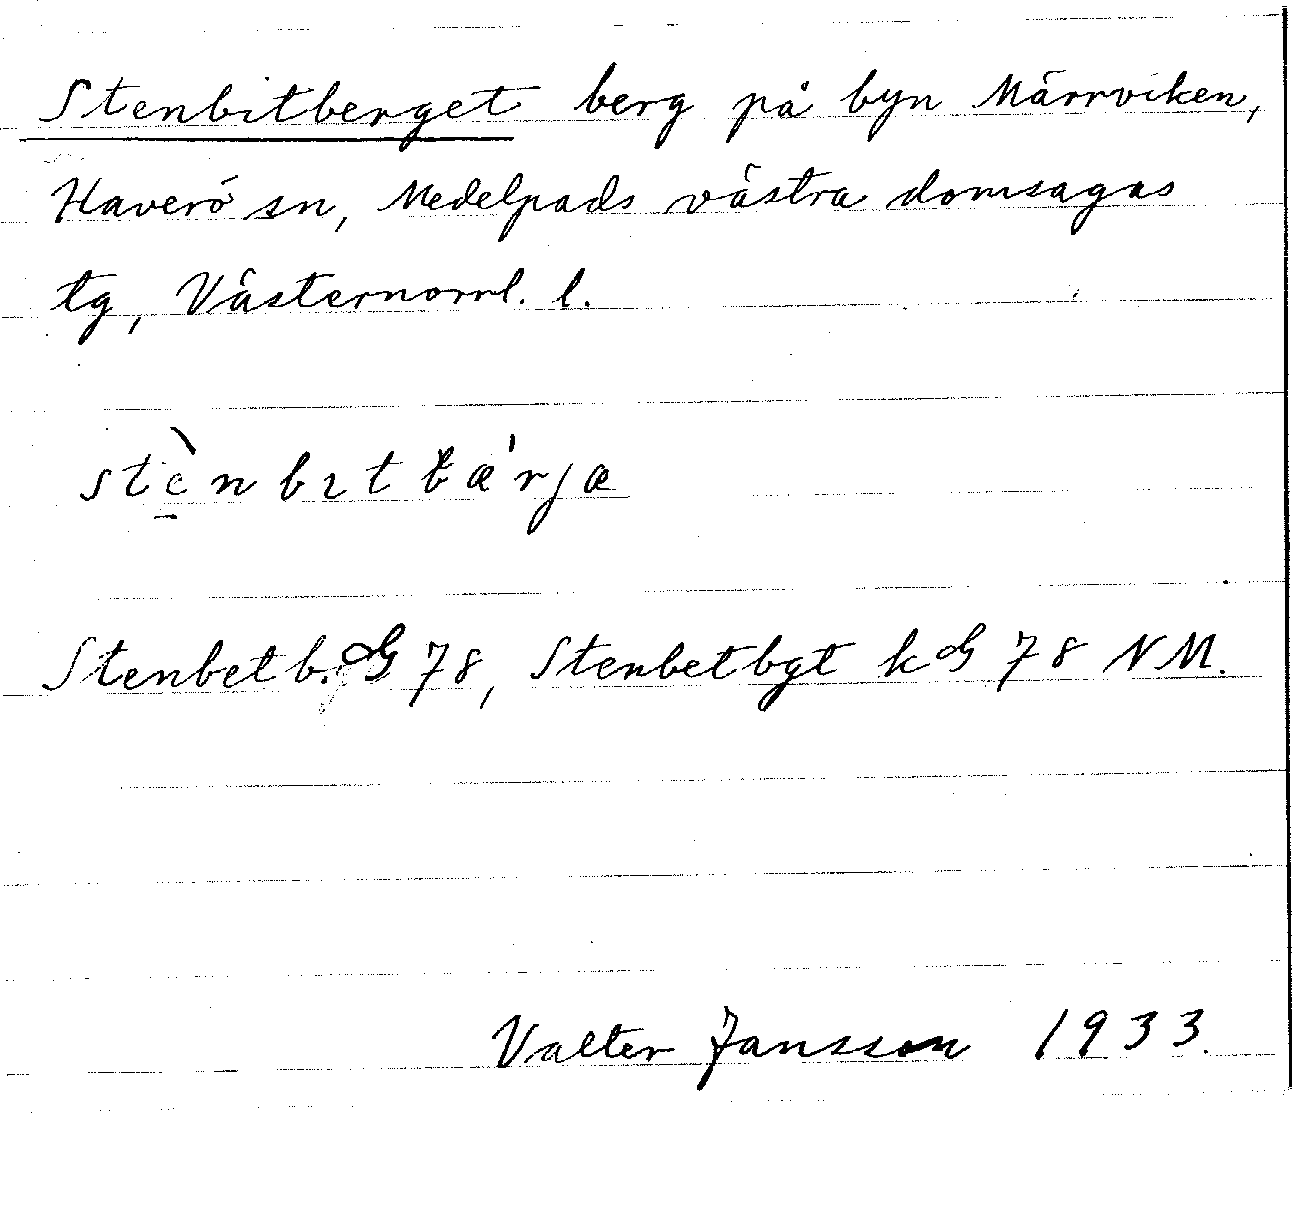 Stenbitberget berg på byn Märrviken,
Haverö sn, Medelpads västra domsagas
tg, Västernorrl. l.
stè̱nbɩttæ'rjæ
Stenbetb. G 78, Stenbetbgt k G 78 NM.
Valter Jansson 1933.